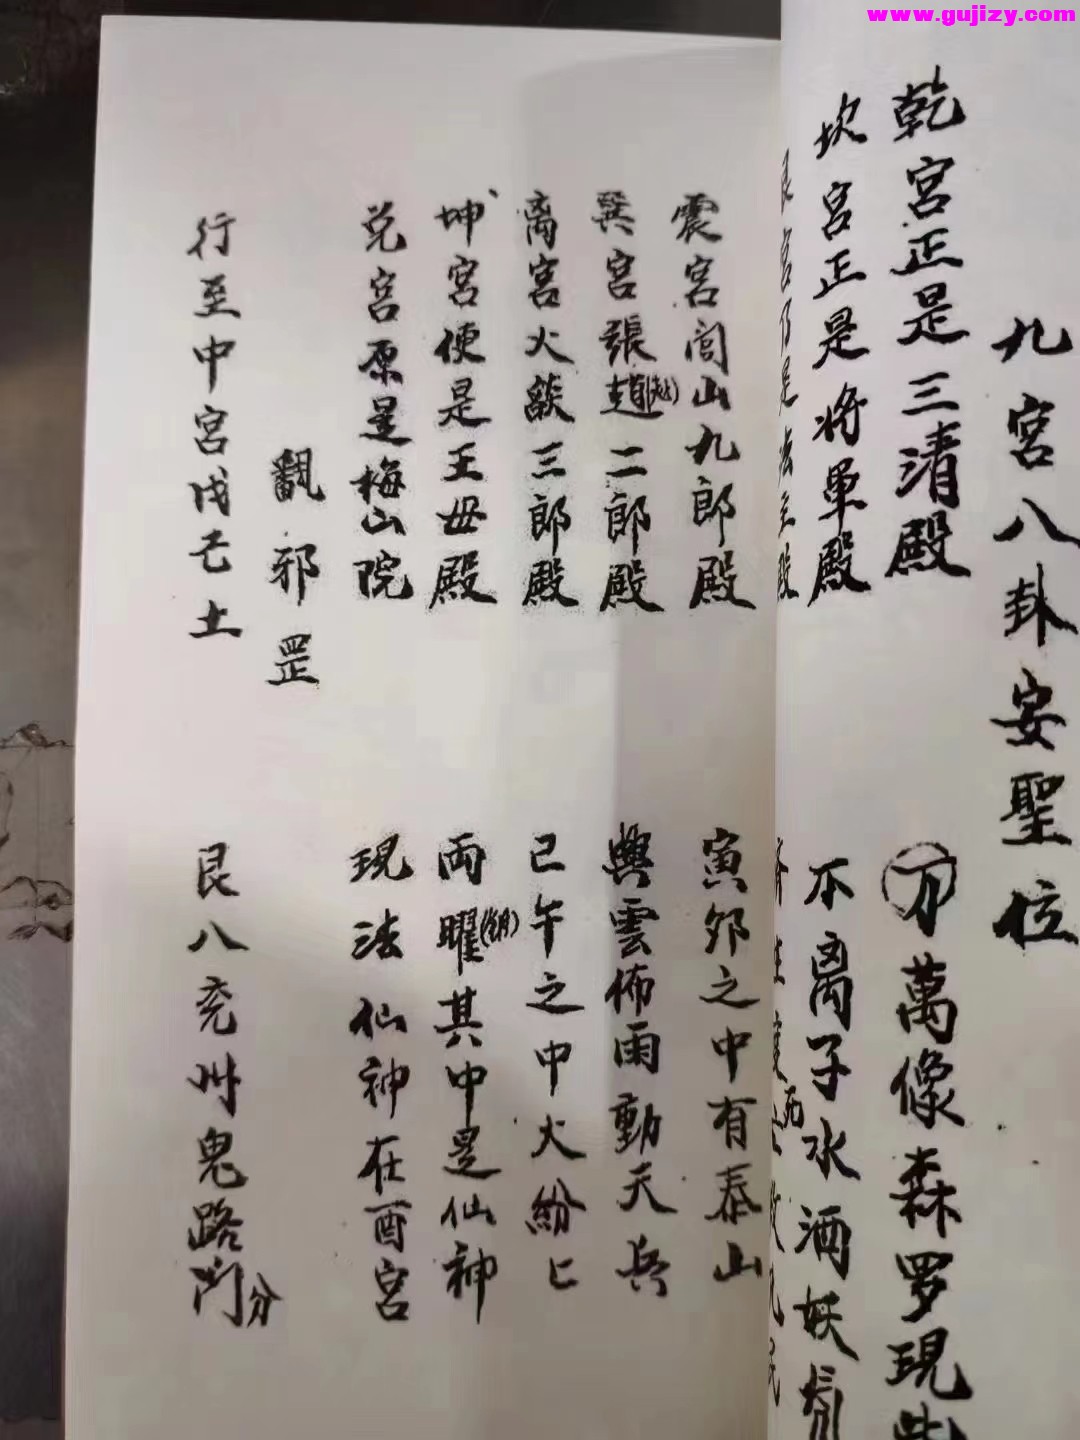 www.gujizy.com
九宮八卦安聖位
乾宮正是三清殿 万萬像森罗現
坎宮正是将軍殿 不离子水洒妖氛
宮乃是法主殿
震宮閭山九郎殿 寅卯之中有泰山
巽宮張趙二郎殿 興雲佈雨動天兵
离宮火燄三郎殿 巳午之中火紛匕
坤宮便是王母殿 両曜其中是仙神
兑宮原是梅山院 現法仙神在酉宮
翻邪罡
行至中宮戊己土 艮八兖州鬼路门分